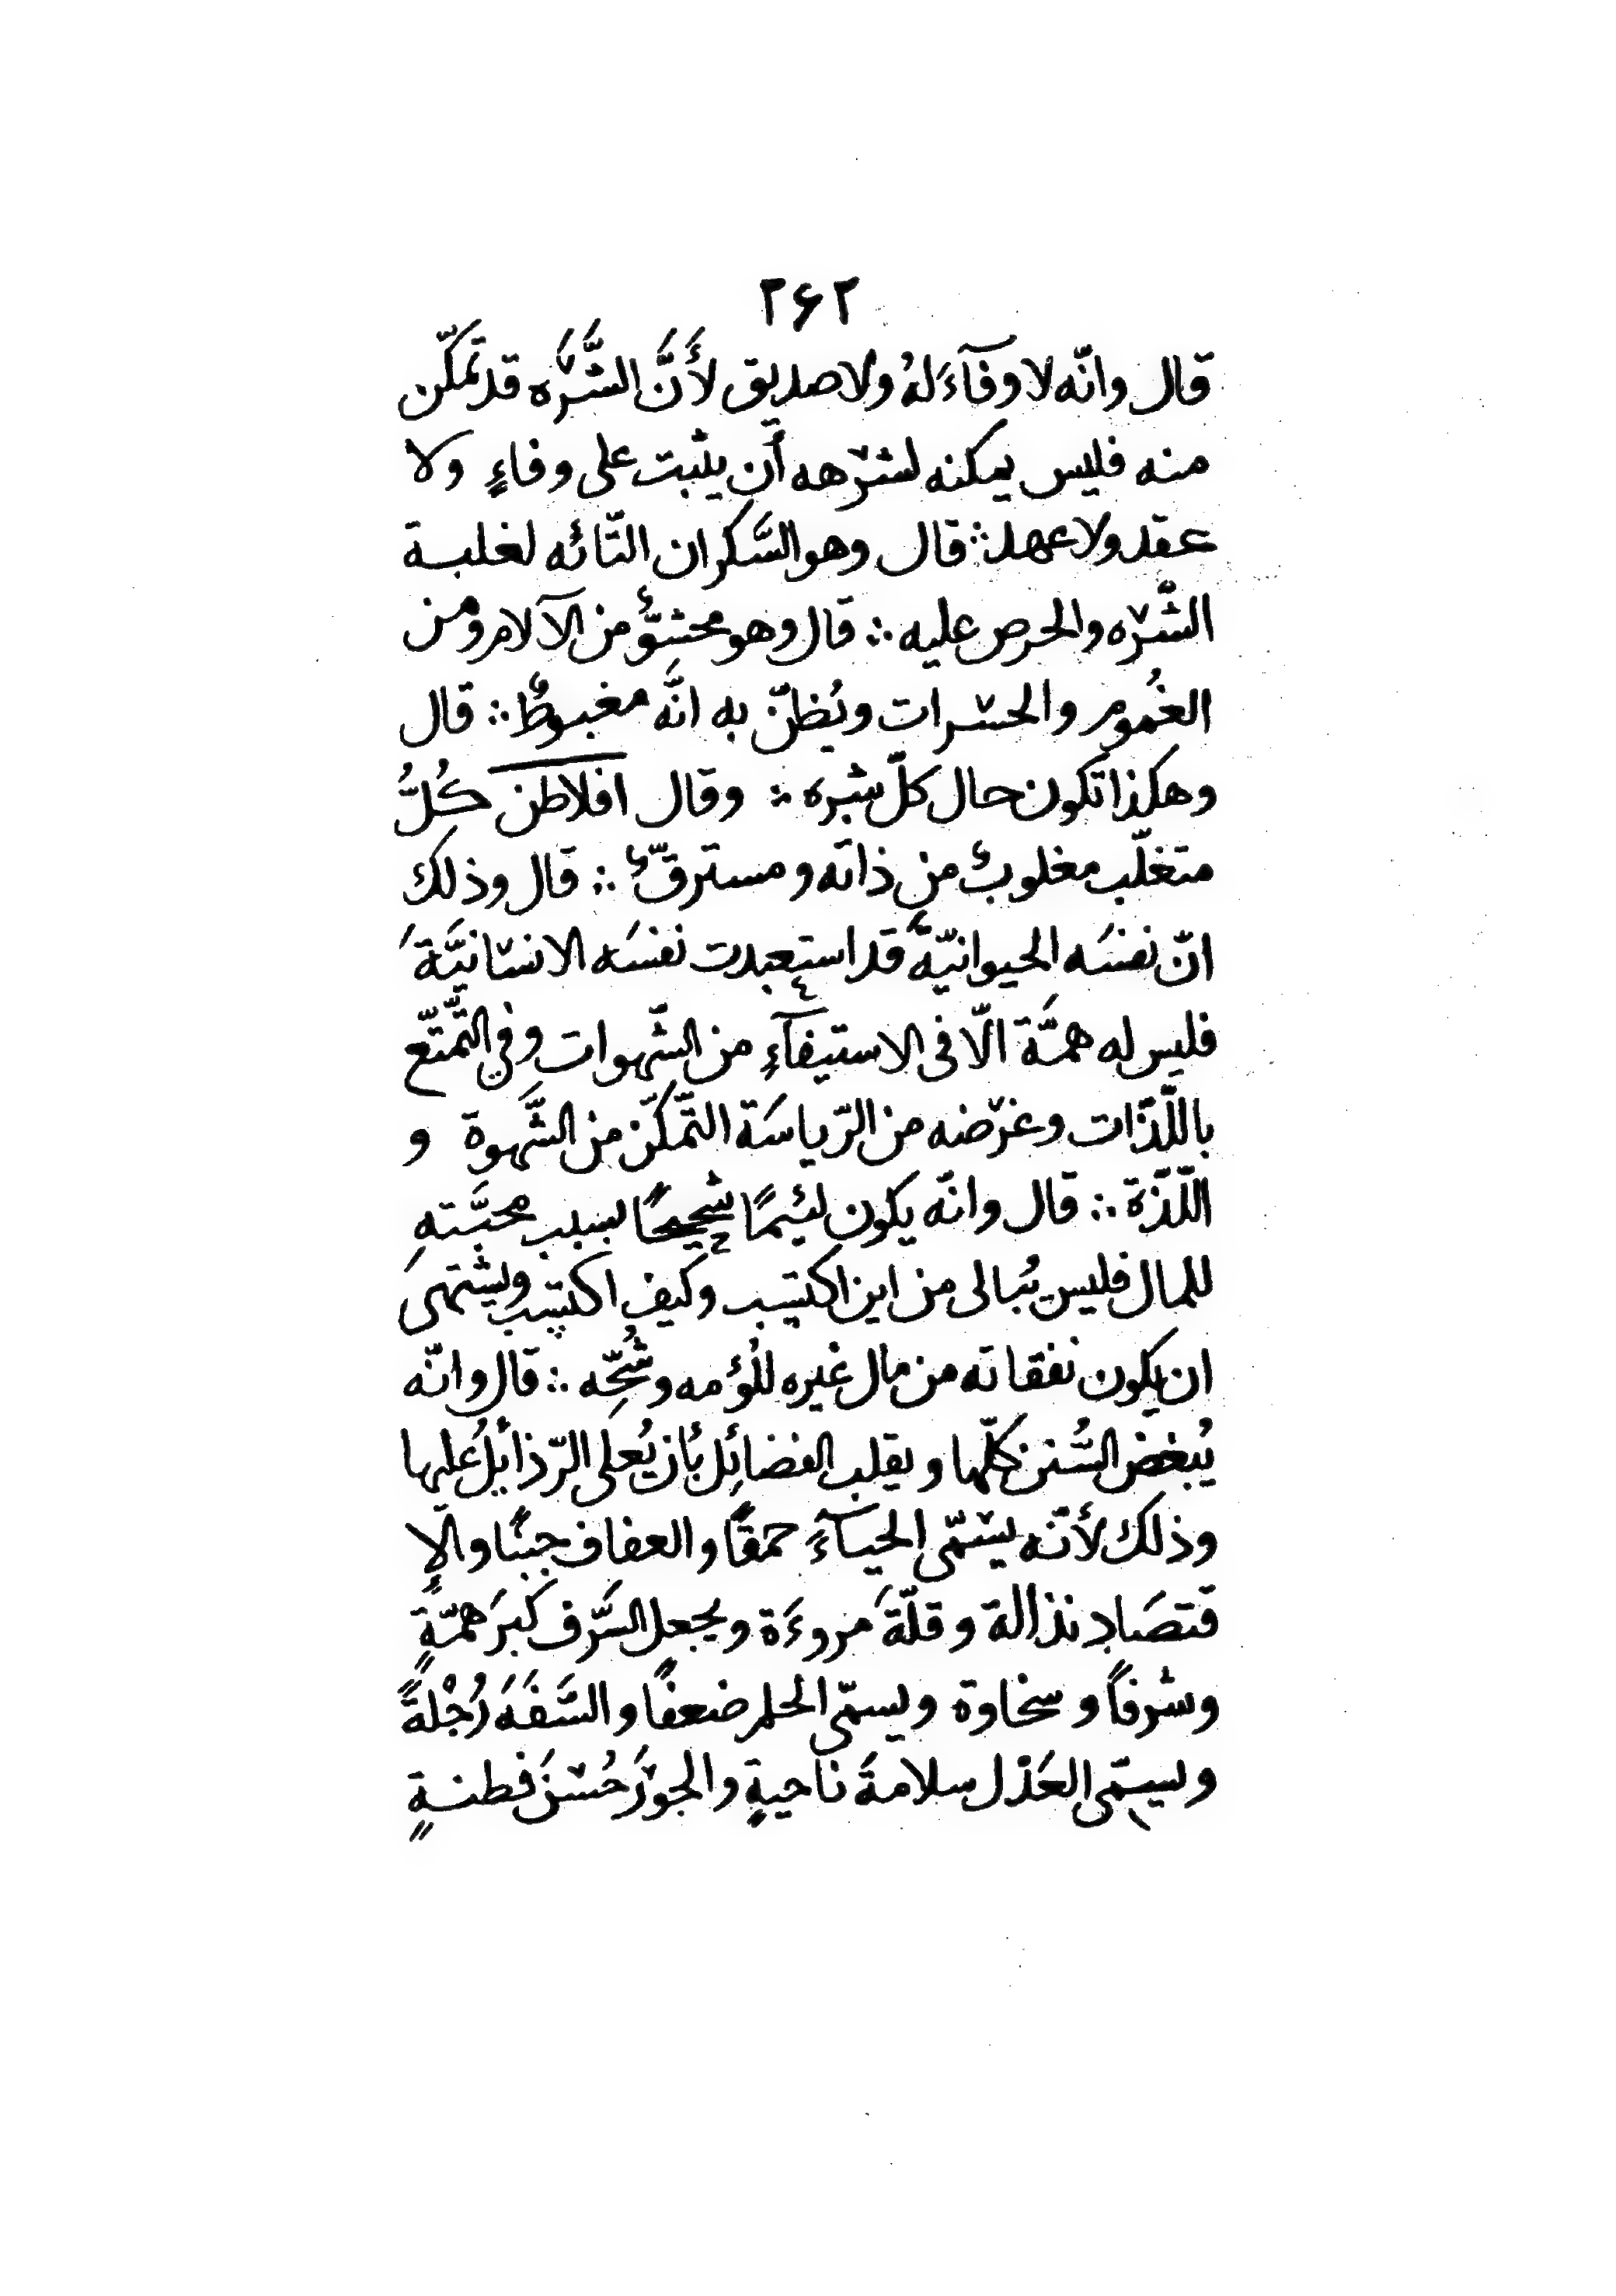 ۲۶۲
قال وانّه لا وفآءَ لهُ ولا صديق لأَنَّ الشَّرَه قد تَمكّن
منه فليس يمكنه لشرهه أن يثبت على وفاءٍ ولا
عقد ولا عهد ∴ قال وهو السَّكران التّائه لغلبة
الشّره والحرص عليه ∴ قال وهو محشوٌّ من الآلام ومن
الغُموم والحسرات ويُظنّ به انَّه مغبوطٌ ∴ قال
وهكذا تكون حال كلّ شره ∴ وقال افلاطن كُلُّ
متغلّب مغلوبٌ من ذاته ومسترقٌّ ∴ قال وذلك
انّ نفسَه الحيوانيّةَ قد استعبدت نفسَه الانسانيَّةَ
فليس له همَّة الّا فى الاستيفآءِ من الشّهوات وفي التّمتّع
باللّذّات وغرضه من الرّياسَة التّمكّن من الشَّهوة و
اللّذّة ∴ قال وانّه يكون لئيمًا شحيحًا بسبب محبَّتهِ
للمال فليس يُبالى من اين اكتسب وكيف اكتسب ويشتهىَ
ان يكون نفقاته من مال غيره للُؤمه وشُحِّه ∴ قال وانّه
يُبغض السُّنن كلّها ويقلب الفضائِل بأن يُعلى الرّذائلُ عليها
وذلك لأنّه يسمّى الحيآءَ حمقًا والعفاف جبنًا والإ
قتصَاد نذالة وقلّةَ مروءَة ويجعل السَّرف كبَر همّةٍ
وشرفًا وسخاوة ويسمّى الحلم ضعفًا والسَّفَهَ رُجْلةً
ويسمّى العَدْل سلامةَ ناحيةٍ والجوْرَ حُسْنَ فطنةٍ